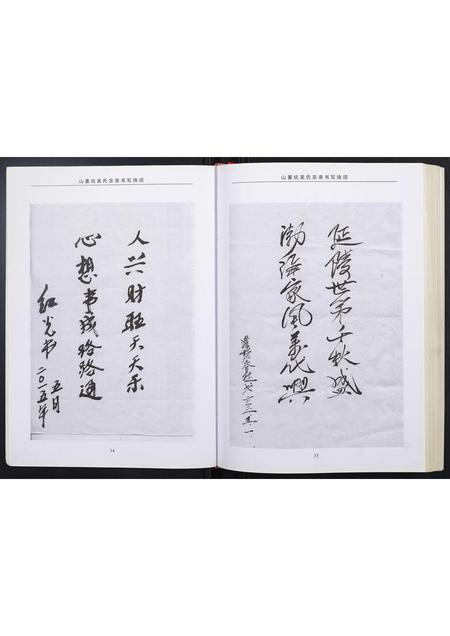 山姜坑吴氏宗亲书写诗词
人兴财旺天天乐
心想事成路路通
红光书
二〇一五年
五月
34
山姜坑吴氏宗亲书写诗词
延陵世第千秋盛
渤海家风万代兴
35